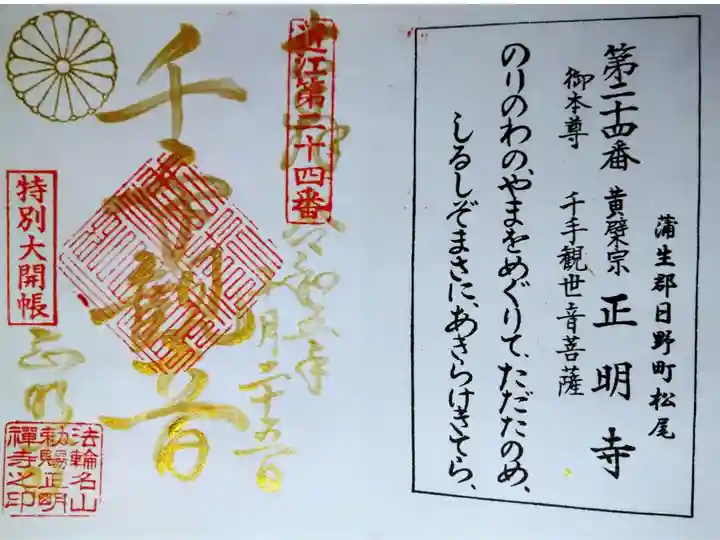 蒲生郡日野町松尾
第二十四番 黄檗宗 正明寺
御本尊 千手観世音菩薩
のりのわの、やまをめぐりて、ただたのめ、
しるしぞまさに、あきらけきてら、
近江第二十四番
奉拝 令和五年
月二十五日
千手観音
特別大開帳
正明
法輪名山
勅賜正明
禅寺之印